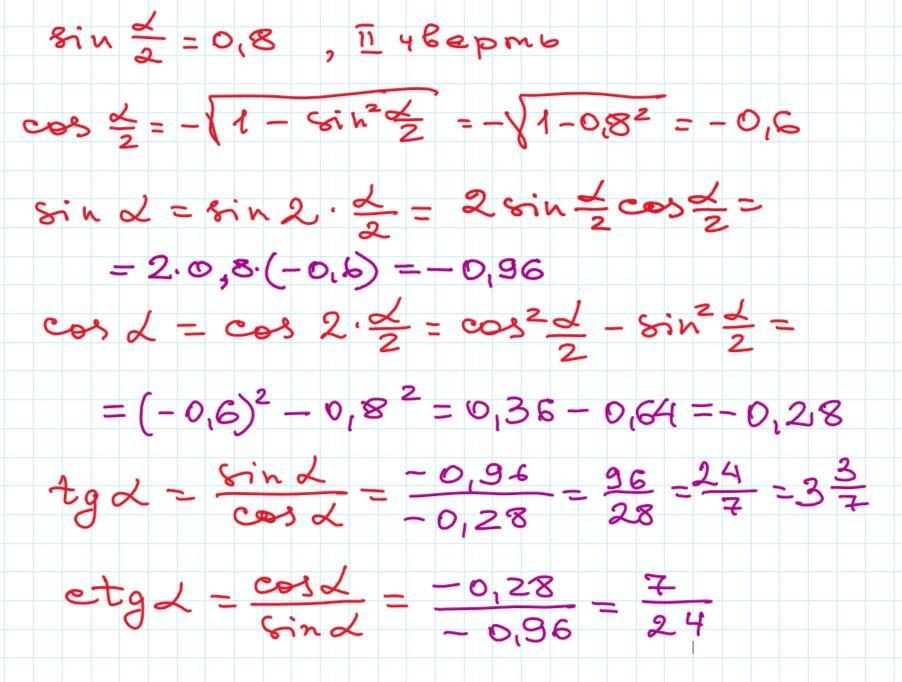 sin α/2 = 0,8 , II чверть
cos α/2 = -√(1 - sin² α/2) = -√(1-0,8²) = -0,6
sin α = sin 2 · α/2 = 2 sin α/2 cos α/2 =
= 2·0,8·(-0,6) = -0,96
cos α = cos 2 · α/2 = cos² α/2 - sin² α/2 =
= (-0,6)² - 0,8² = 0,36 - 0,64 = -0,28
tg α = sin α/cos α = -0,96/-0,28 = 96/28 = 24/7 = 3 3/7
ctg α = cos α/sin α = -0,28/-0,96 = 7/24